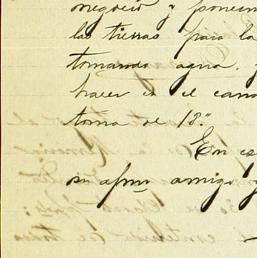 negocio y ponem
las tierras para la
tomando agua y
hacer el el cana
toma de 18."
En es
su afmo amigo y